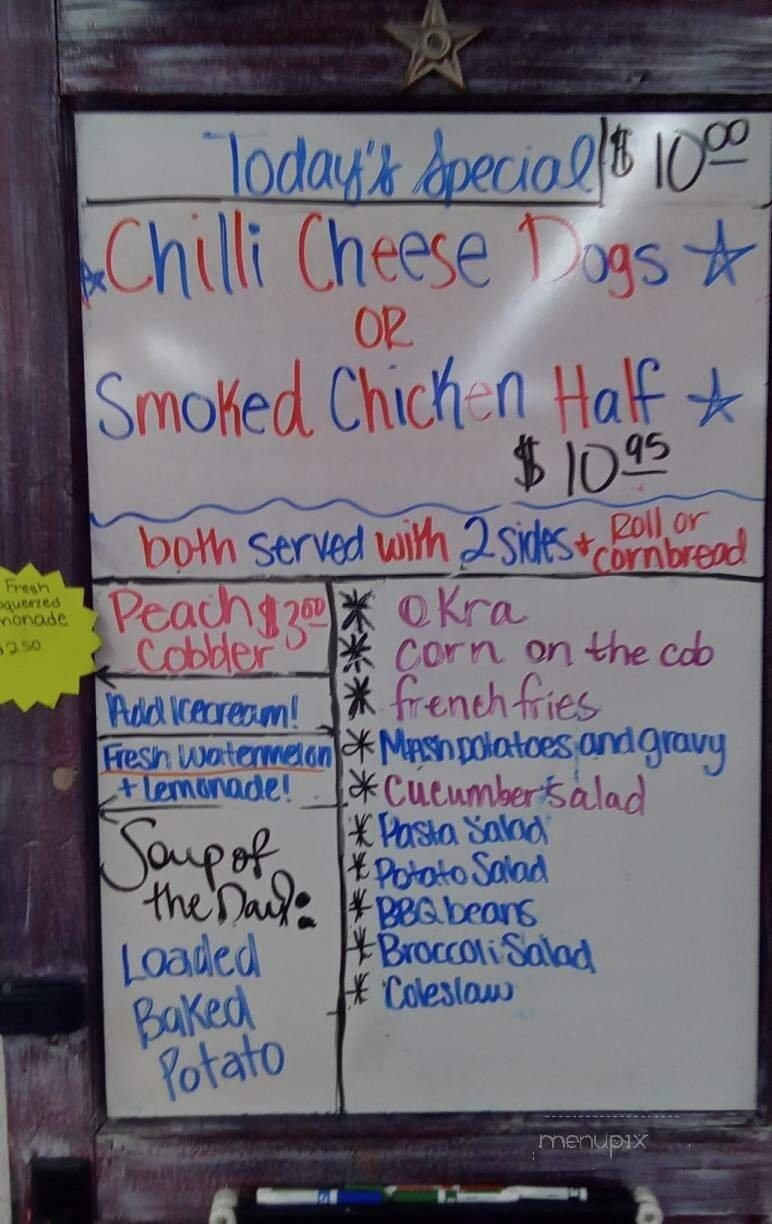 Today's Special $10.00
Chilli Cheese Dogs
OR
Smoked Chicken Half
$10.95
both served with 2 sides + Roll or cornbread
Fresh
squeezed
monade
250
Peach $3.00
Cobbler
Add Icecream!
Fresh Watermelon
+ Lemonade!
Soup of
the Day:
Loaded
Baked
Potato
* Okra
* corn on the cob
* french fries
* Mash potatoes and gravy
* Cucumber salad
* Pasta Salad
* Potato Salad
* BBQ beans
* Broccoli Salad
* Coleslaw
menupix